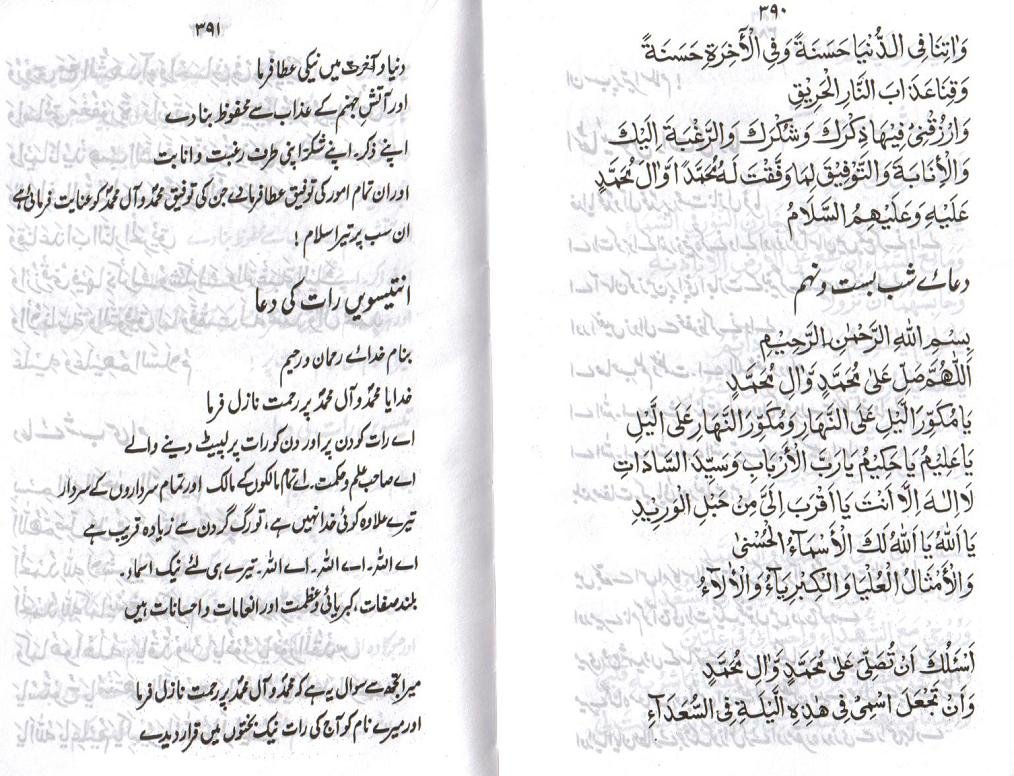 ٣٩٠
وَاٰتِنَا فِی الدُّنْیَا حَسَنَةً وَفِی الْاٰخِرَةِ حَسَنَةً
وَقِنَا عَذَابَ النَّارِ الْحَرِیْقِ
وَارْزُقْنِیْ فِیْهَا ذِكْرَكَ وَشُكْرَكَ وَالرَّغْبَةَ اِلَیْكَ
وَالْاِنَابَةَ وَالتَّوْفِیْقَ لِمَا وَفَّقْتَ لَهٗ مُحَمَّدًا وَّاٰلَ مُحَمَّدٍ
عَلَیْهِ وَعَلَیْهِمُ السَّلَامُ
دعائے شب بست و نہم
بِسْمِ اللّٰهِ الرَّحْمٰنِ الرَّحِیْمِ
اَللّٰهُمَّ صَلِّ عَلٰی مُحَمَّدٍ وَّاٰلِ مُحَمَّدٍ
یَا مُكَوِّرَ الَّیْلِ عَلَی النَّهَارِ وَمُكَوِّرَ النَّهَارِ عَلَی الَّیْلِ
یَا عَلِیْمُ یَا حَكِیْمُ یَا رَبَّ الْاَرْبَابِ وَسَیِّدَ السَّادَاتِ
لَا اِلٰهَ اِلَّا اَنْتَ یَا اَقْرَبَ اِلَیَّ مِنْ حَبْلِ الْوَرِیْدِ
یَا اَللّٰهُ یَا اَللّٰهُ لَكَ الْاَسْمَآءُ الْحُسْنٰی
وَالْاَمْثَالُ الْعُلْیَا وَالْكِبْرِیَآءُ وَالْاٰلَآءُ
اَسْئَلُكَ اَنْ تُصَلِّیَ عَلٰی مُحَمَّدٍ وَّاٰلِ مُحَمَّدٍ
وَاَنْ تَجْعَلَ اسْمِیْ فِیْ هٰذِهِ الَّیْلَةِ فِی السُّعَدَآءِ
٣٩١
دنیا و آخرت میں نیکی عطا فرما
اور آتشِ جہنم کے عذاب سے محفوظ بنا دے
اپنے ذکر، اپنے شکر، اپنی طرف رغبت و انابت
اور ان تمام امور کی توفیق عطا فرما دے جن کی توفیق محمدؐ و آل محمدؐ کو عنایت فرمائی ہے
ان سب پر تیرا سلام!
انتیسویں رات کی دعا
بنام خدائے رحمان و رحیم
خدایا محمدؐ و آل محمدؐ پر رحمت نازل فرما
اے رات کو دن پر اور دن کو رات پر لپیٹ دینے والے
اے صاحب علم و حکمت۔ اے تمام مالکوں کے مالک اور تمام سرداروں کے سردار
تیرے علاوہ کوئی خدا نہیں ہے، تو رگ گردن سے زیادہ قریب ہے
اے اللہ۔ اے اللہ۔ اے اللہ۔ تیرے ہی لئے نیک اسماء۔
بلند صفات، کبریائی و عظمت اور انعامات و احسانات ہیں
میرا تجھ سے سوال یہ ہے کہ محمدؐ و آل محمدؐ پر رحمت نازل فرما
اور میرے نام کو آج کی رات نیک بختوں میں قرار دیدے